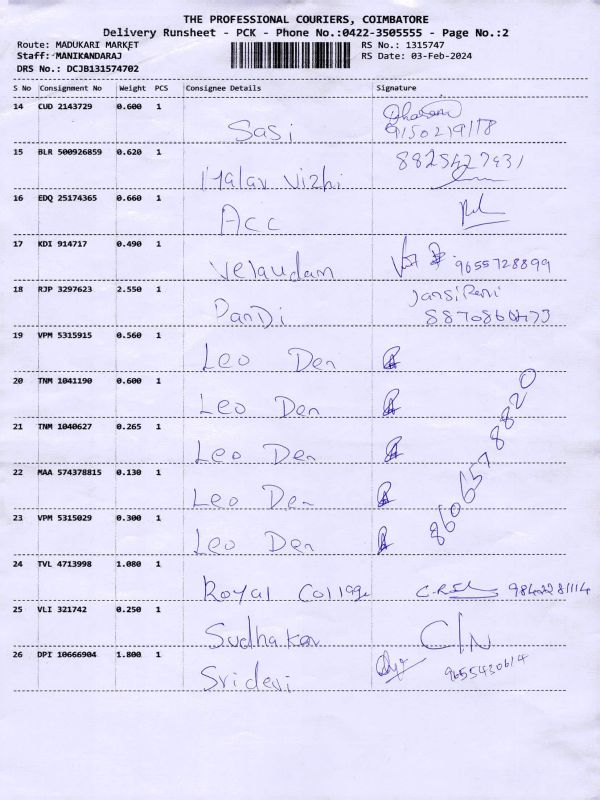 THE PROFESSIONAL COURIERS, COIMBATORE
Delivery Runsheet - PCK - Phone No.:0422-3505555 - Page No.:2
Route: MADUKARI MARKET RS No.: 1315747
Staff: MANIKANDARAJ RS Date: 03-Feb-2024
DRS No.: DCJB131574702
S No Consignment No Weight PCS Consignee Details Signature
14 CUD 2143729 0.600 1 Sasi
15 BLR 500926859 0.620 1 Malar Vizhi
16 EDQ 25174365 0.660 1 Acc
17 KDI 914717 0.490 1 Velaudam 9655728899
18 RJP 3297623 2.550 1 PanDi Jansi Rani
19 VPM 5315915 0.560 1 Leo Den
20 TNM 1041190 0.600 1 Leo Den
21 TNM 1040627 0.265 1 Leo Den
22 MAA 574378815 0.130 1 Leo Den
23 VPM 5315029 0.300 1 Leo Den
8606578820
24 TVL 4713998 1.080 1 Royal College
25 VLI 321742 0.250 1 Sudhakar
26 DPI 10666904 1.800 1 Sridevi 9655430614